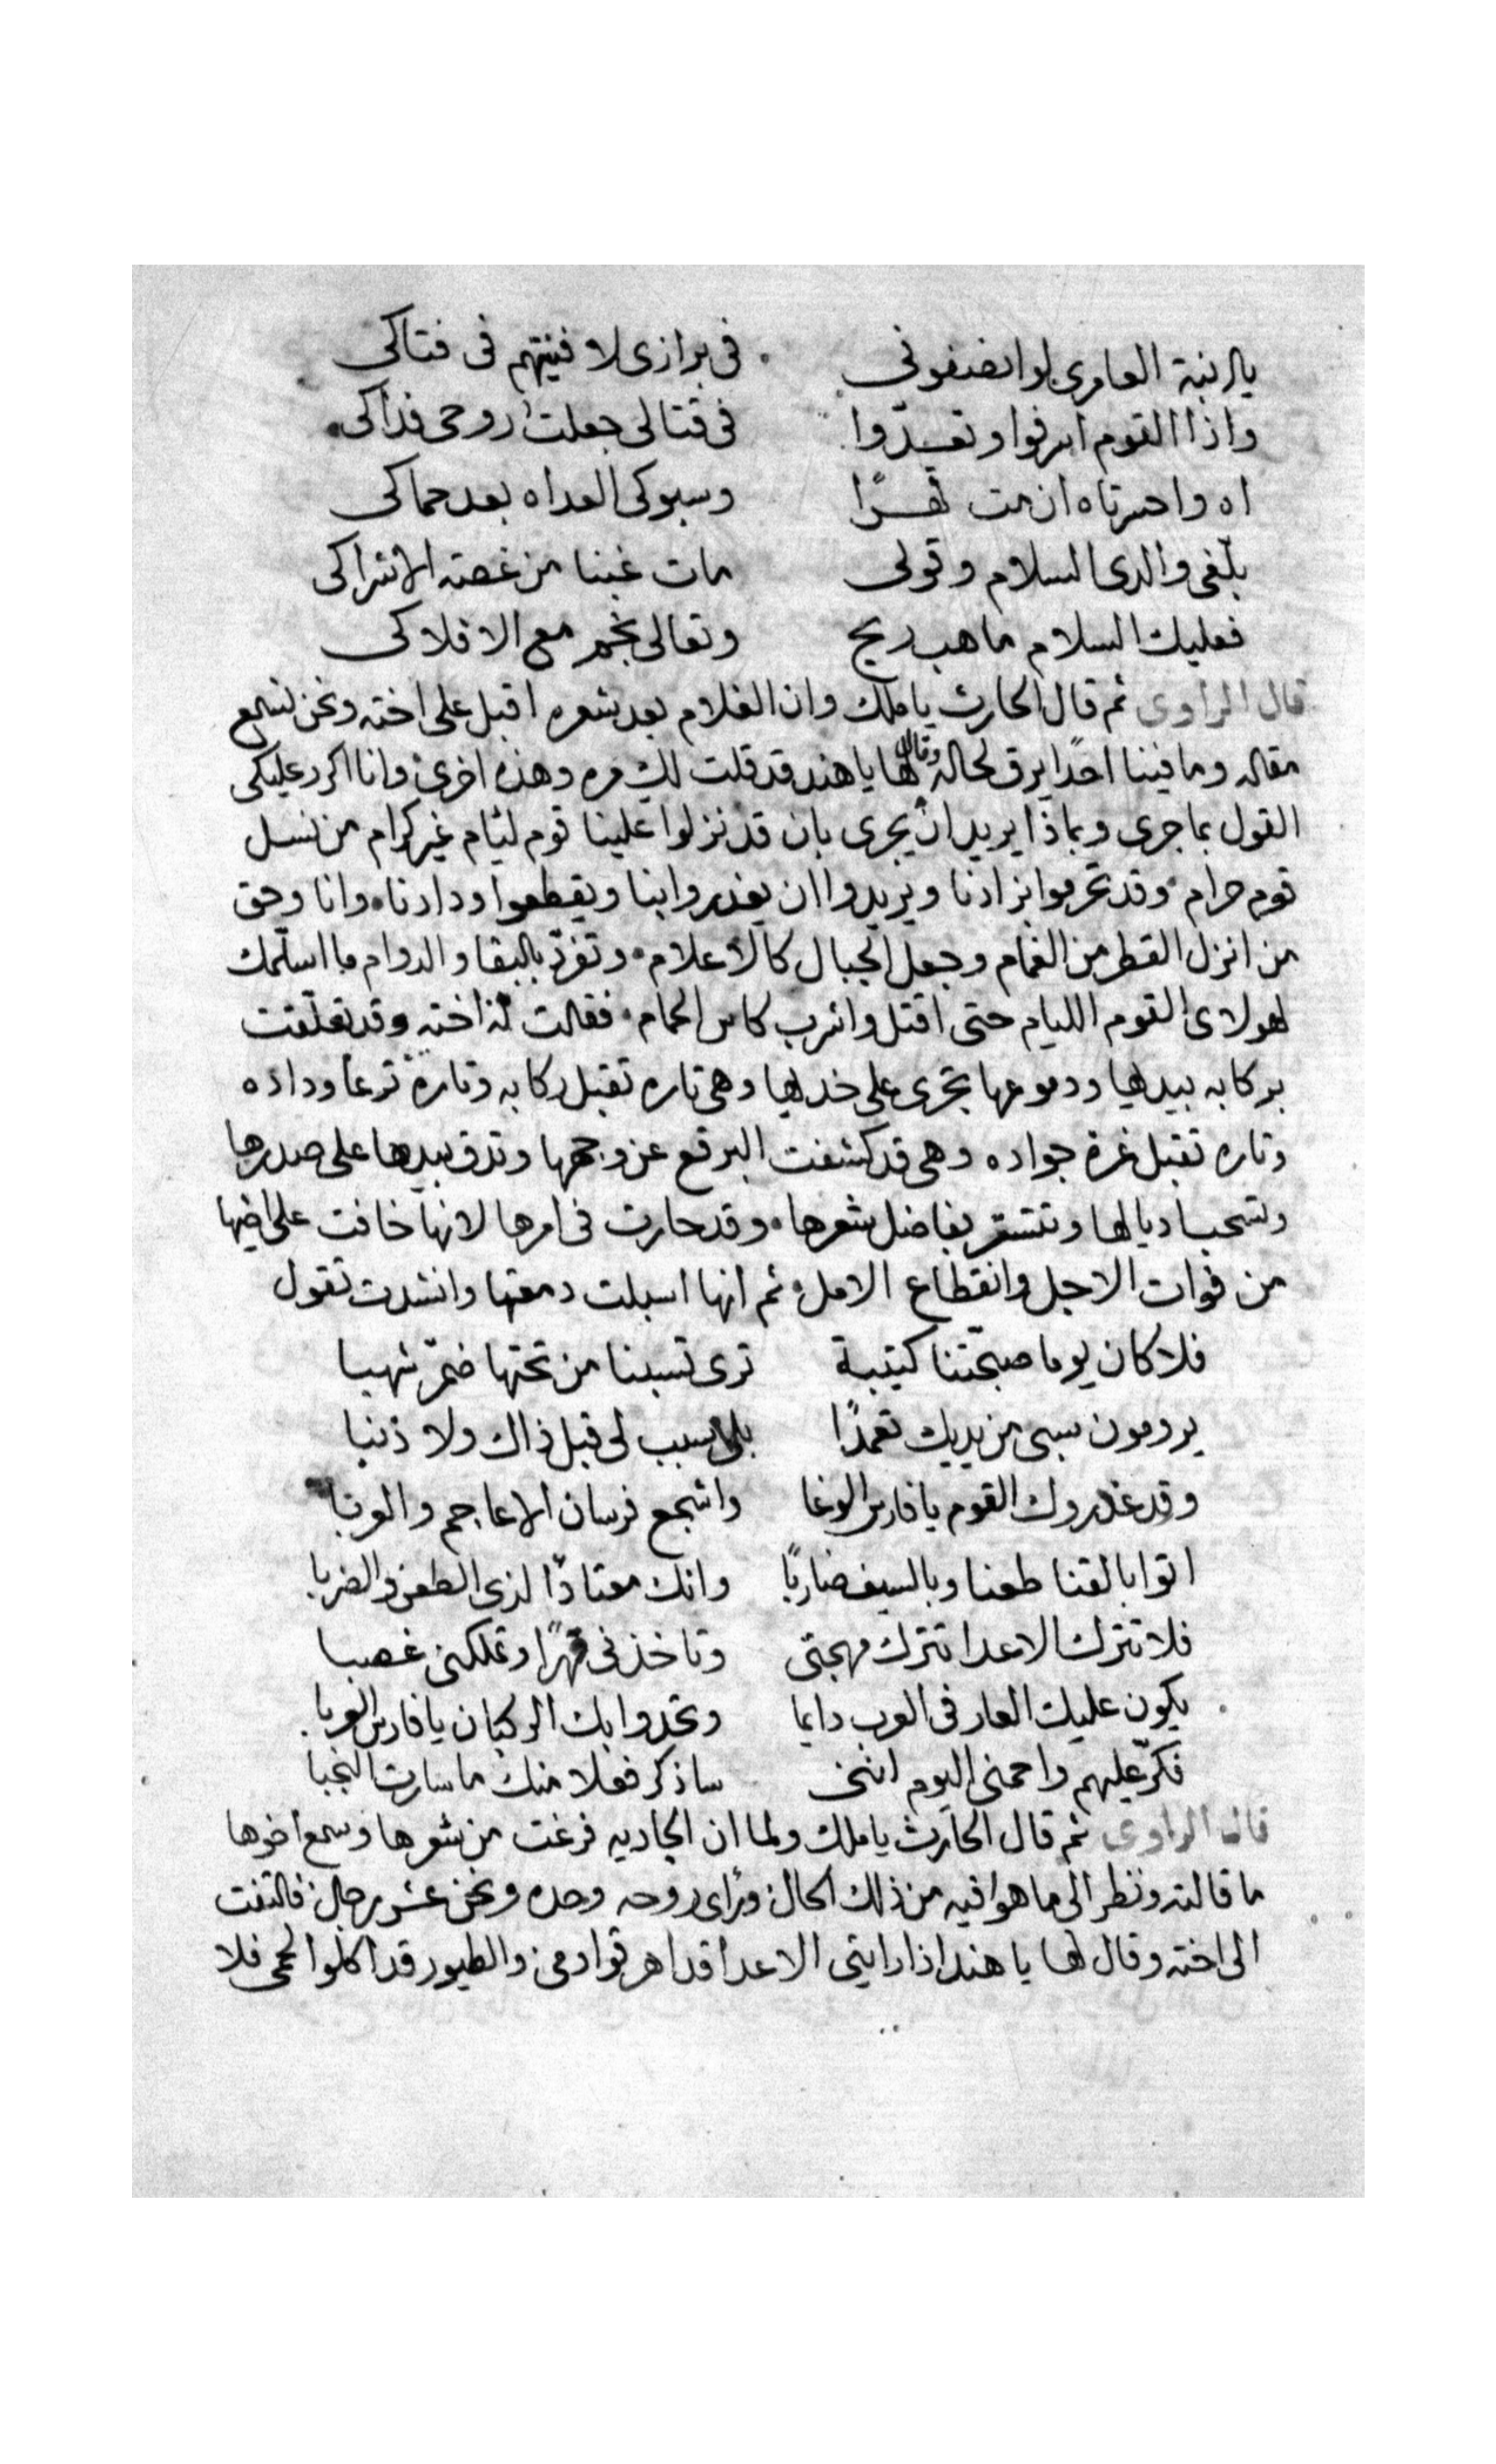 يا ابنة العامرى لو انصفونى فى برازى لافنيتهم فى فتاكى
واذا القوم اسرفوا وتعدّوا فى قتالى جعلت روحى فداكى
اه واحسرتاه ان مت قهرًا وسبوكى العداه بعد حماكى
بلّغى والدى السلام وقولى مات غبنا من غصته الاشراكى
فعليك السلام ما هب ريح وتعالى نجم مع الافلاكى
قال الراوى ثم قال الحارث يا ملك وان الغلام بعد شعره اقبل على اخته ونحن نسمع
مقاله وما فينا احدًا يرق لحاله وقال لها يا هند قد قلت لك مره وهذه اخرى وانا اكرر عليكى
القول بما جرى وبماذا يريد ان يجرى بان قد نزلوا علينا قوم ليئام غير كرام من نسل
قوم حرام وقد تحرموا بزادنا ويريدوا ان يغدروا بنا ويقطعوا ودادنا وانا وحق
من انزل القطر من الغمام وجعل الجبال كالاعلام وتفرّد بالبقا والدوام ما اسلّمك
لهولاى القوم الليام حتى اقتل واشرب كاس الحمام فقالت له اخته وقد تعلّقت
بركابه بيديها ودموعها تجرى على خديها وهى تاره تقبل ركابه وتارة ترعا وداده
وتاره تقبل غرة جواده وهى قد كشفت البرقع عن وجهها وتدق بيدها على صدرها
وتسحب اديالها وتتستر بفاضل شعرها وقد حارت فى امرها لانها خافت على اخيها
من فوات الاجل وانقطاع الامل ثم انها اسبلت دمعتها وانشدت تقول
فلا كان يوما صبحتنا كتيبة ترى تسبنا من تحتها ضمّر شهبا
يرومون سبى من يديك تعمدًا بلا سبب لى قبل ذاك ولا ذنبا
وقد غدروك القوم يا فارس الوغا واشجع فرسان الاعاجم والعربا
اتوا بالقنا طعنا وبالسيف ضاربًا وانك معتادًا لذى الطعن والضربا
فلا تترك الاعدا تترك مهجتى وتاخذنى قهرًا وتملكنى غصبا
يكون عليك العار فى العرب دايما وتحدوا بك الركبان يا فارس العربا
فكرّ عليهم واحمنى اليوم اننى ساذكر فعلا منك ما سارت النجبا
قال الراوى ثم قال الحارث يا ملك ولما ان الجاريه فرغت من شعرها وسمع اخوها
ما قالته ونظر الى ما هو فيه من ذلك الحال وراى روحه وحده ونحن عشر رجال فالتفت
الى اخته وقال لها يا هند اذا رايتى الاعدا قد اهرقوا دمى والطيور قد اكلوا لحمى فلا